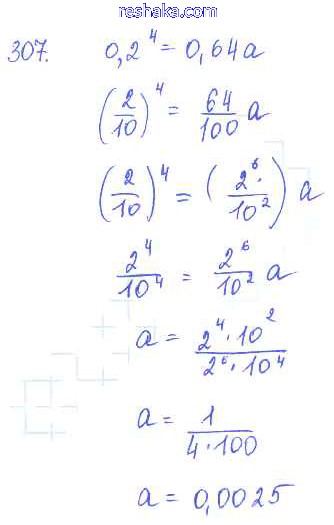 reshaka.com
307. 0,2⁴ = 0,64a
(2/10)⁴ = 64/100 a
(2/10)⁴ = (2⁶·/10²) a
2⁴/10⁴ = 2⁶/10² a
a = 2⁴·10²/2⁶·10⁴
a = 1/4·100
a = 0,0025